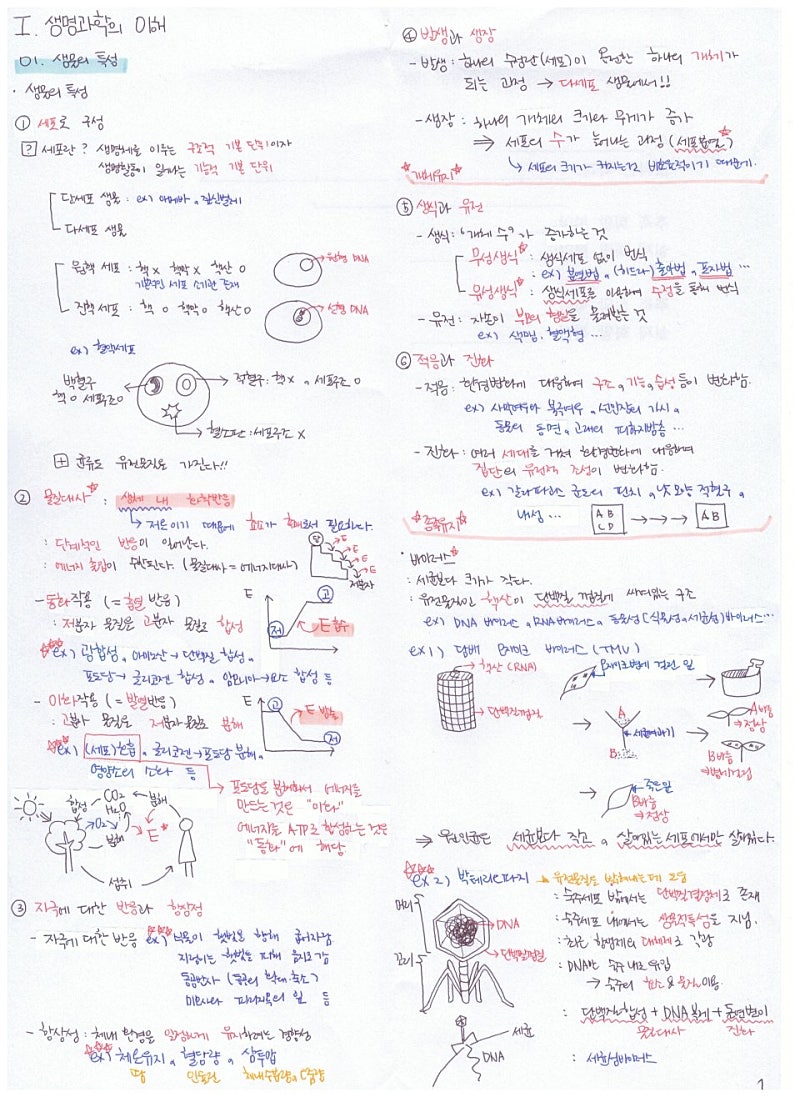 I. 생명과학의 이해
01. 생물의 특성
· 생물의 특성
① 세포로 구성
? 세포란? 생명체를 이루는 구조적 기본 단위이자
생명활동이 일어나는 기능적 기본 단위
단세포 생물 : ex) 아메바, 짚신벌레
다세포 생물
원핵 세포 : 핵 X 핵막 X 핵산 O
원형 DNA
진핵 세포 : 핵 O 핵막 O 핵산 O
선형 DNA
ex) 혈액세포
백혈구
핵 O 세포구조 O
적혈구 : 핵 X, 세포구조 O
혈소판 : 세포구조 X
+ 균류도 유전물질로 가진다!!
② 물질대사 : 생체 내 화학반응
→ 저온이기 때문에 효소가 촉매로서 필요하다.
: 단계적인 반응이 일어난다.
: 에너지 출입이 수반된다. (물질대사 = 에너지대사)
고
E
E
E
E
저분자
- 동화작용 (= 흡열 반응)
: 저분자 물질을 고분자 물질로 합성
E
고
저
E 흡수
ex) 광합성, 아미노산 → 단백질 합성,
포도당 → 글리코젠 합성, 암모니아 → 요소 합성 등
- 이화작용 (= 발열반응)
: 고분자 물질을 저분자 물질로 분해
E
고
저
E 방출
ex) (세포)호흡, 글리코젠 → 포도당 분해,
영양소의 소화 등
→ 포도당을 분해해서 에너지를
만드는 것은 "이화"
에너지를 ATP로 합성하는 것은
"동화"에 해당
합성
CO2
H2O
분해
O2
분해
E
섭취
③ 자극에 대한 반응과 항상성
- 자극에 대한 반응 ex) 식물이 햇빛을 향해 굽어자람
지렁이는 햇빛을 피해 음지로 감
동공반사 (동공의 확대·축소)
미모사나 파리지옥의 잎 등
- 항상성 : 체내 환경을 일정하게 유지하려는 경향성
ex) 체온유지, 혈당량, 삼투압
땀 인슐린 체내수분량, 오줌량
④ 발생과 생장
- 발생 : 하나의 수정란(세포)이 온전한 하나의 개체가
되는 과정 → 다세포 생물에서!!
- 생장 : 하나의 개체의 크기와 무게가 증가
⇒ 세포의 수가 늘어나는 과정 (세포분열)
↳ 세포의 크기가 커지는것 비효율적이기 때문에.
개체유지
⑤ 생식과 유전
- 생식 : "개체 수"가 증가하는 것
무성생식 : 생식세포 없이 번식
: ex) 분열법, (히드라) 출아법, 포자법 …
유성생식 : 생식세포를 이용하여 수정을 통해 번식
- 유전 : 자손이 부모의 형질을 물려받는 것
ex) 색맹, 혈액형 …
⑥ 적응과 진화
- 적응 : 환경변화에 대응하여 구조, 기능, 습성 등이 변화함.
ex) 사막여우와 북극여우, 선인장의 가시,
동물의 동면, 고래의 피하지방층 …
- 진화 : 여러 세대를 거쳐 환경변화에 대응하여
집단의 유전적 조성이 변화함.
ex) 갈라파고스 군도의 핀치, 낫 모양 적혈구,
내성 …
A B
C D
→ → →
A B
종족유지
· 바이러스
: 세균보다 크기가 작다.
: 유전물질인 핵산이 단백질 껍질에 싸여있는 구조
ex) DNA 바이러스, RNA 바이러스, 동물성 (식물성, 세균성) 바이러스…
ex1) 담배 모자이크 바이러스 (TMV)
핵산 (RNA)
단백질껍질
모자이크병에 걸린 잎
A
세균여과기
B
A 바름
→ 정상
B 바름
→ 병에 걸림
죽은 잎
B 바름
→ 정상
⇒ 병원균은 세균보다 작고, 살아있는 세포에서만 살아있다.
ex2) 박테리오파지
머리
꼬리
DNA
단백질껍질
: 숙주세포 밖에서는 단백질 결정체로 존재
: 숙주세포 내에서는 생물적특성을 지님.
: 최근 항생제의 대체제로 각광
: DNA만 숙주 내로 유입
→ 숙주의 효소 & 물질 이용
: 단백질합성 + DNA 복제 + 돌연변이
물질대사 진화
: 세균성바이러스
세균
DNA
1